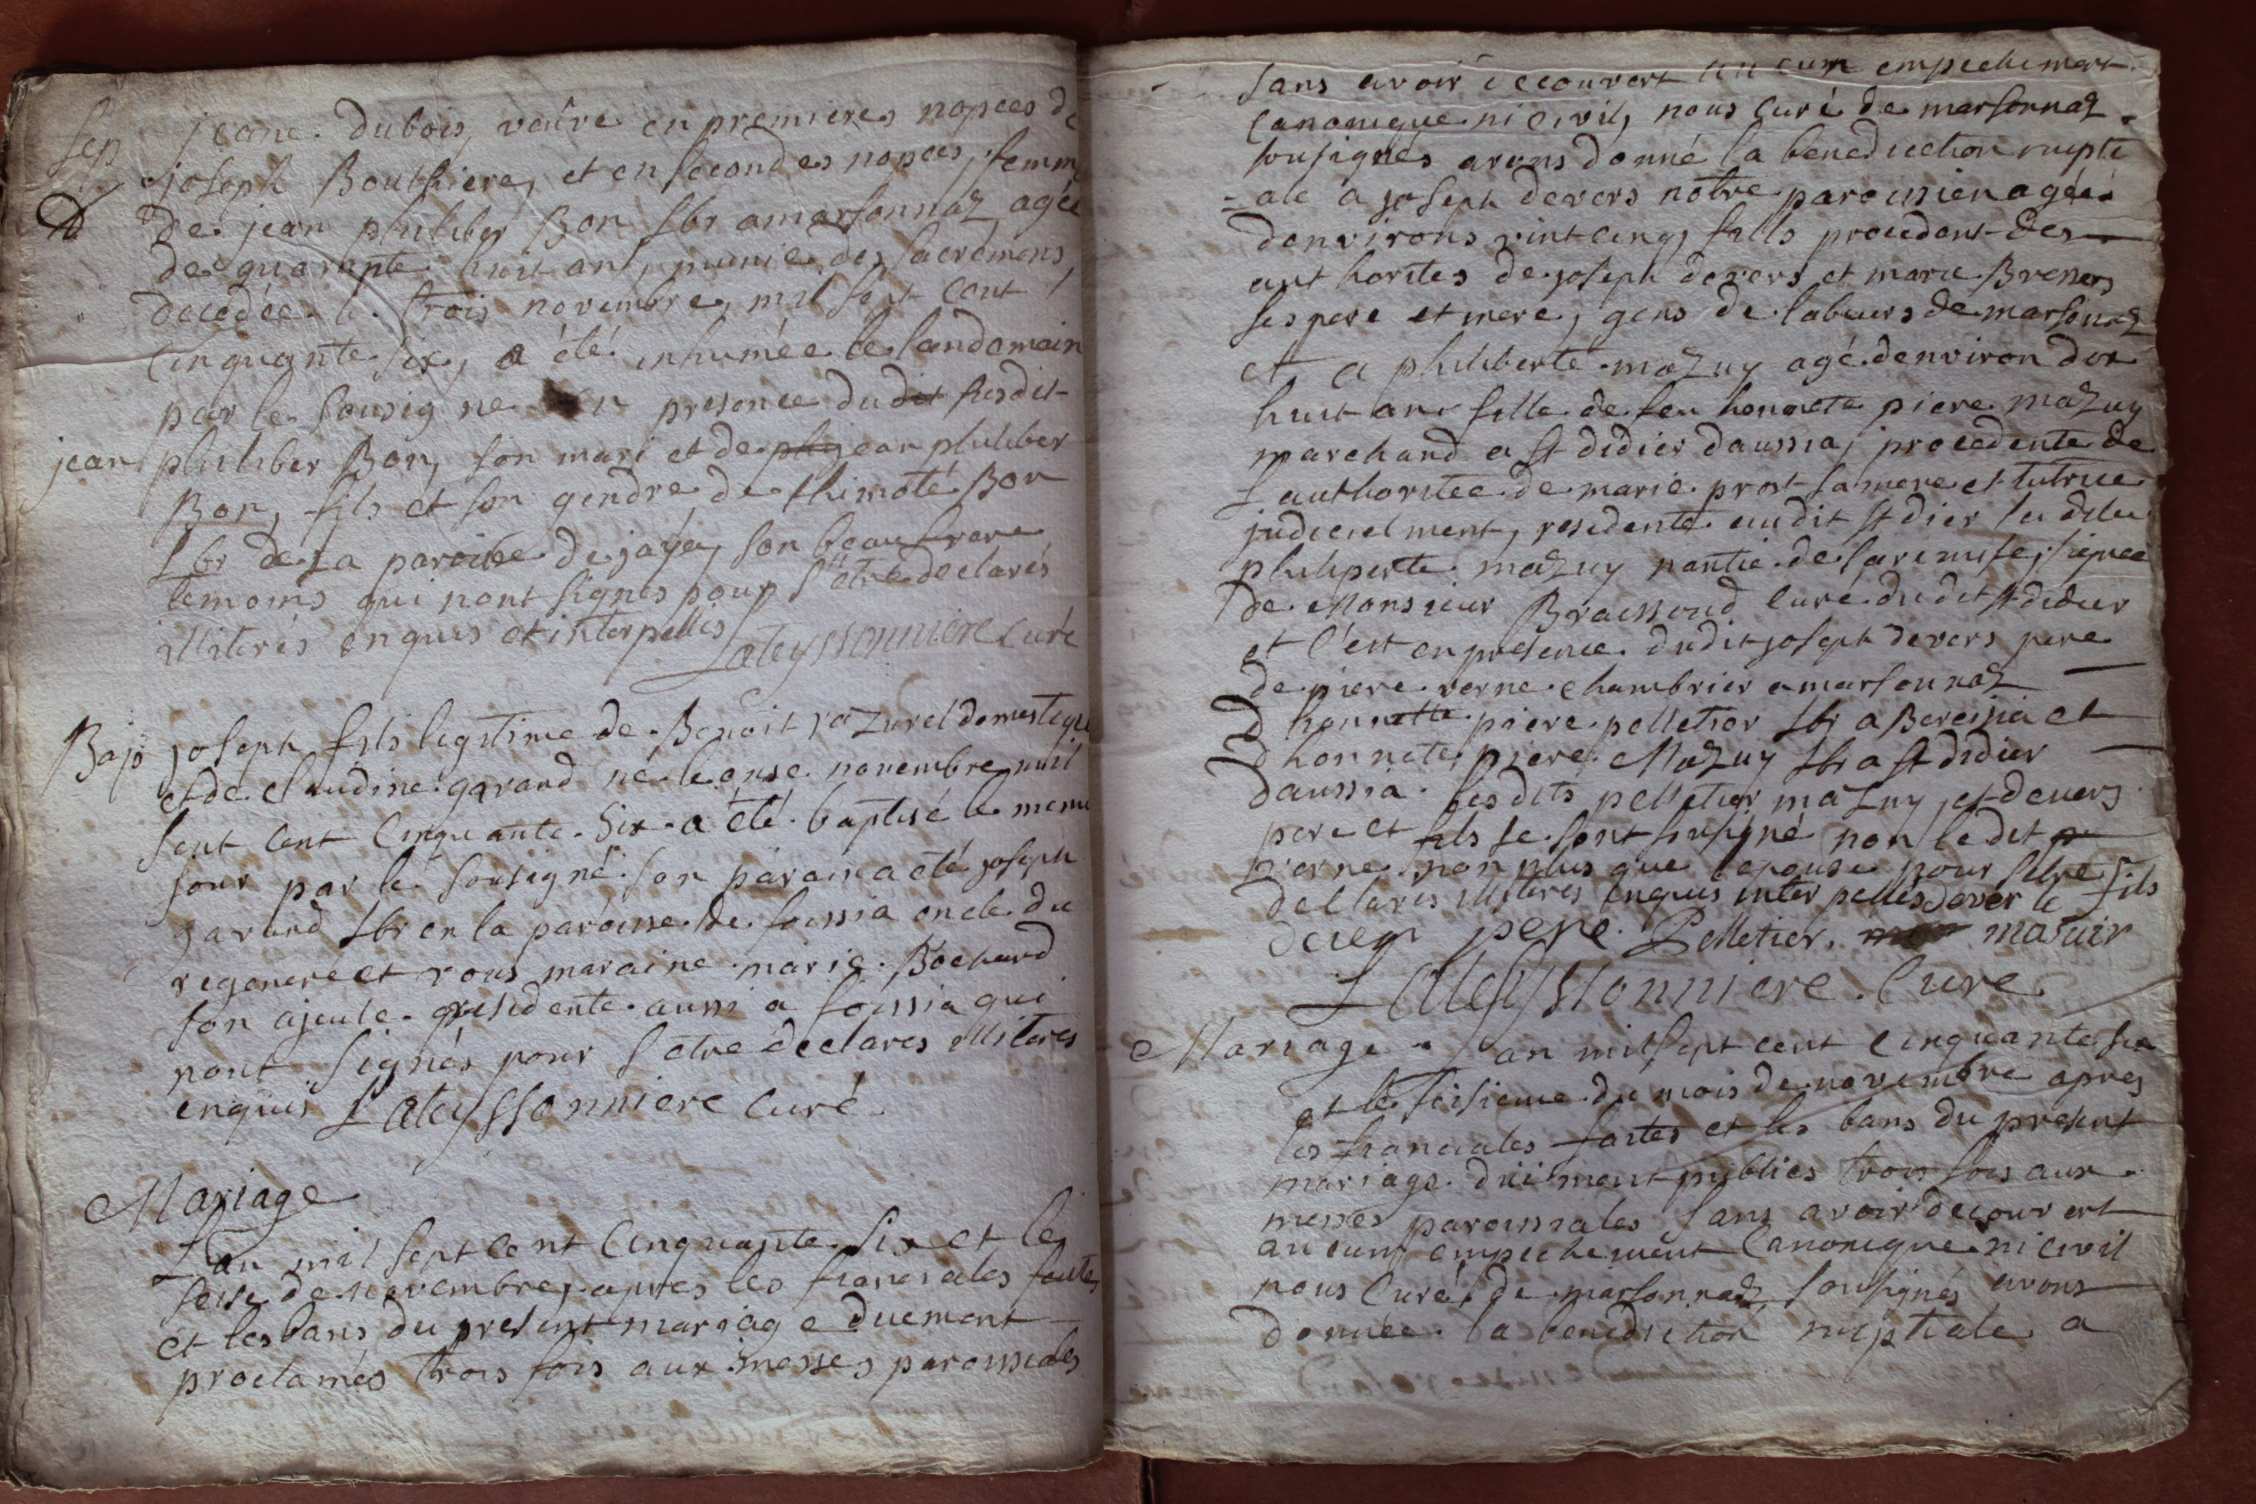 Sep jeane dubois, vaûve en premieres nopces de
joseph Bouthiere, et en secondes nopces, femme
de jean philiber Bon lbr a marsonnaz agée
de quarante huit ans, munie des sacremens
decedée le trois novembre, mil sept cent
cinquante six, a été inhumée le landemain
par le sousigne en presence dudit susdit
jean philiber Bon, son mari et de jean philiber
Bon, fils et son gendre de thimoté Bon
lbr de la paroisse de jayá, son beau frere
temoins qui nont signés pour s'etre declarés
illiterés enquis et interpellés Lateyssonniere curé
Bap joseph fils legitime de Benoit razurel domestique
et de claudine gavard né le onse novembre mil
sept cent cinquante six a été baptisé le meme
jour par le sousigné son parain a eté joseph
gavard lbr en la paroisse de foissia oncle du
regeneré et pour maraine marie Bochard
son ajeule residente aussi a foissia qui
nont signés pour s etre déclarés illiterés
enquis Lateyssonniere curé
Mariage
L'an mil sept cent cinquante six et le
seise de novembre, apres les fianciales faites
et les bans du present mariage duement
proclamés trois fois aux messes paroissiales
sans avoir decouvert aucun empechement
canonique ni civil, nous curé de marsonnaz
sousignés avons donné la benediction nupti
ale a joseph devers nôtre paroissien agée
denvirons vint cinq, fills procedent des
authorites de joseph devers et marie Brevers
ses pere et mere, gens de labeurs de marsonaz
et a philiberte mazuy agé denviron dix
huit ans fille de feu honnete piere mazuy
marchand a st didier daussia, procedente de
l'authoritée de marie prost sa mere et tutrice
judicielment, residente audit st dier la dite
philiperte mazuy partie de la remise, signée
de Monsieur Braissoud curé dudit st didier
et c'est en presence dudit joseph devers pere
de piere verne chambrier a marsonnaz
d honnette piere pelletier lbr a Bereisia et
d honnete piere Mazuy lbr a st didier
daussia. lesdits pelletier mazuy, et devers
pere et fils se sont susigné non le dit
verne non plus que l'epouse pour s'etre
declarés illiterés enquis inter pellés dever le fils
dever pere Pelletier masuir
Lateyssonniere Curé
Mariage L'an mil sept cent cinquante six
et le seisieme du mois de novembre apres
les fianciales faites et les bans du present
mariage duement publiés trois fois aux
messes paroissiales sans avoir decouvert
aucun empechement canonique ni civil
nous curé, de marsonnaz, sousignés avons
donnée la benediction nuptiale a